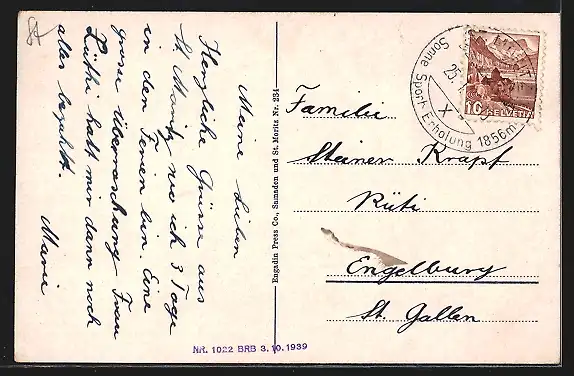 Meine Lieben
Herzliche Grüsse aus
St. Moritz wo ich 3 Tage
in den Ferien bin. Eine
grosse Überraschung Frau
Lüthi hatt mir dann noch
alles bezahlt.
Marie
Engadin Press Co., Samaden und St. Moritz Nr. 234
Familie
Steiner Krapf
Rüti
Engelburg
St. Gallen
Sonne Sport Erholung 1856m
10 HELVETIA
NR. 1022 BRB 3.10.1939